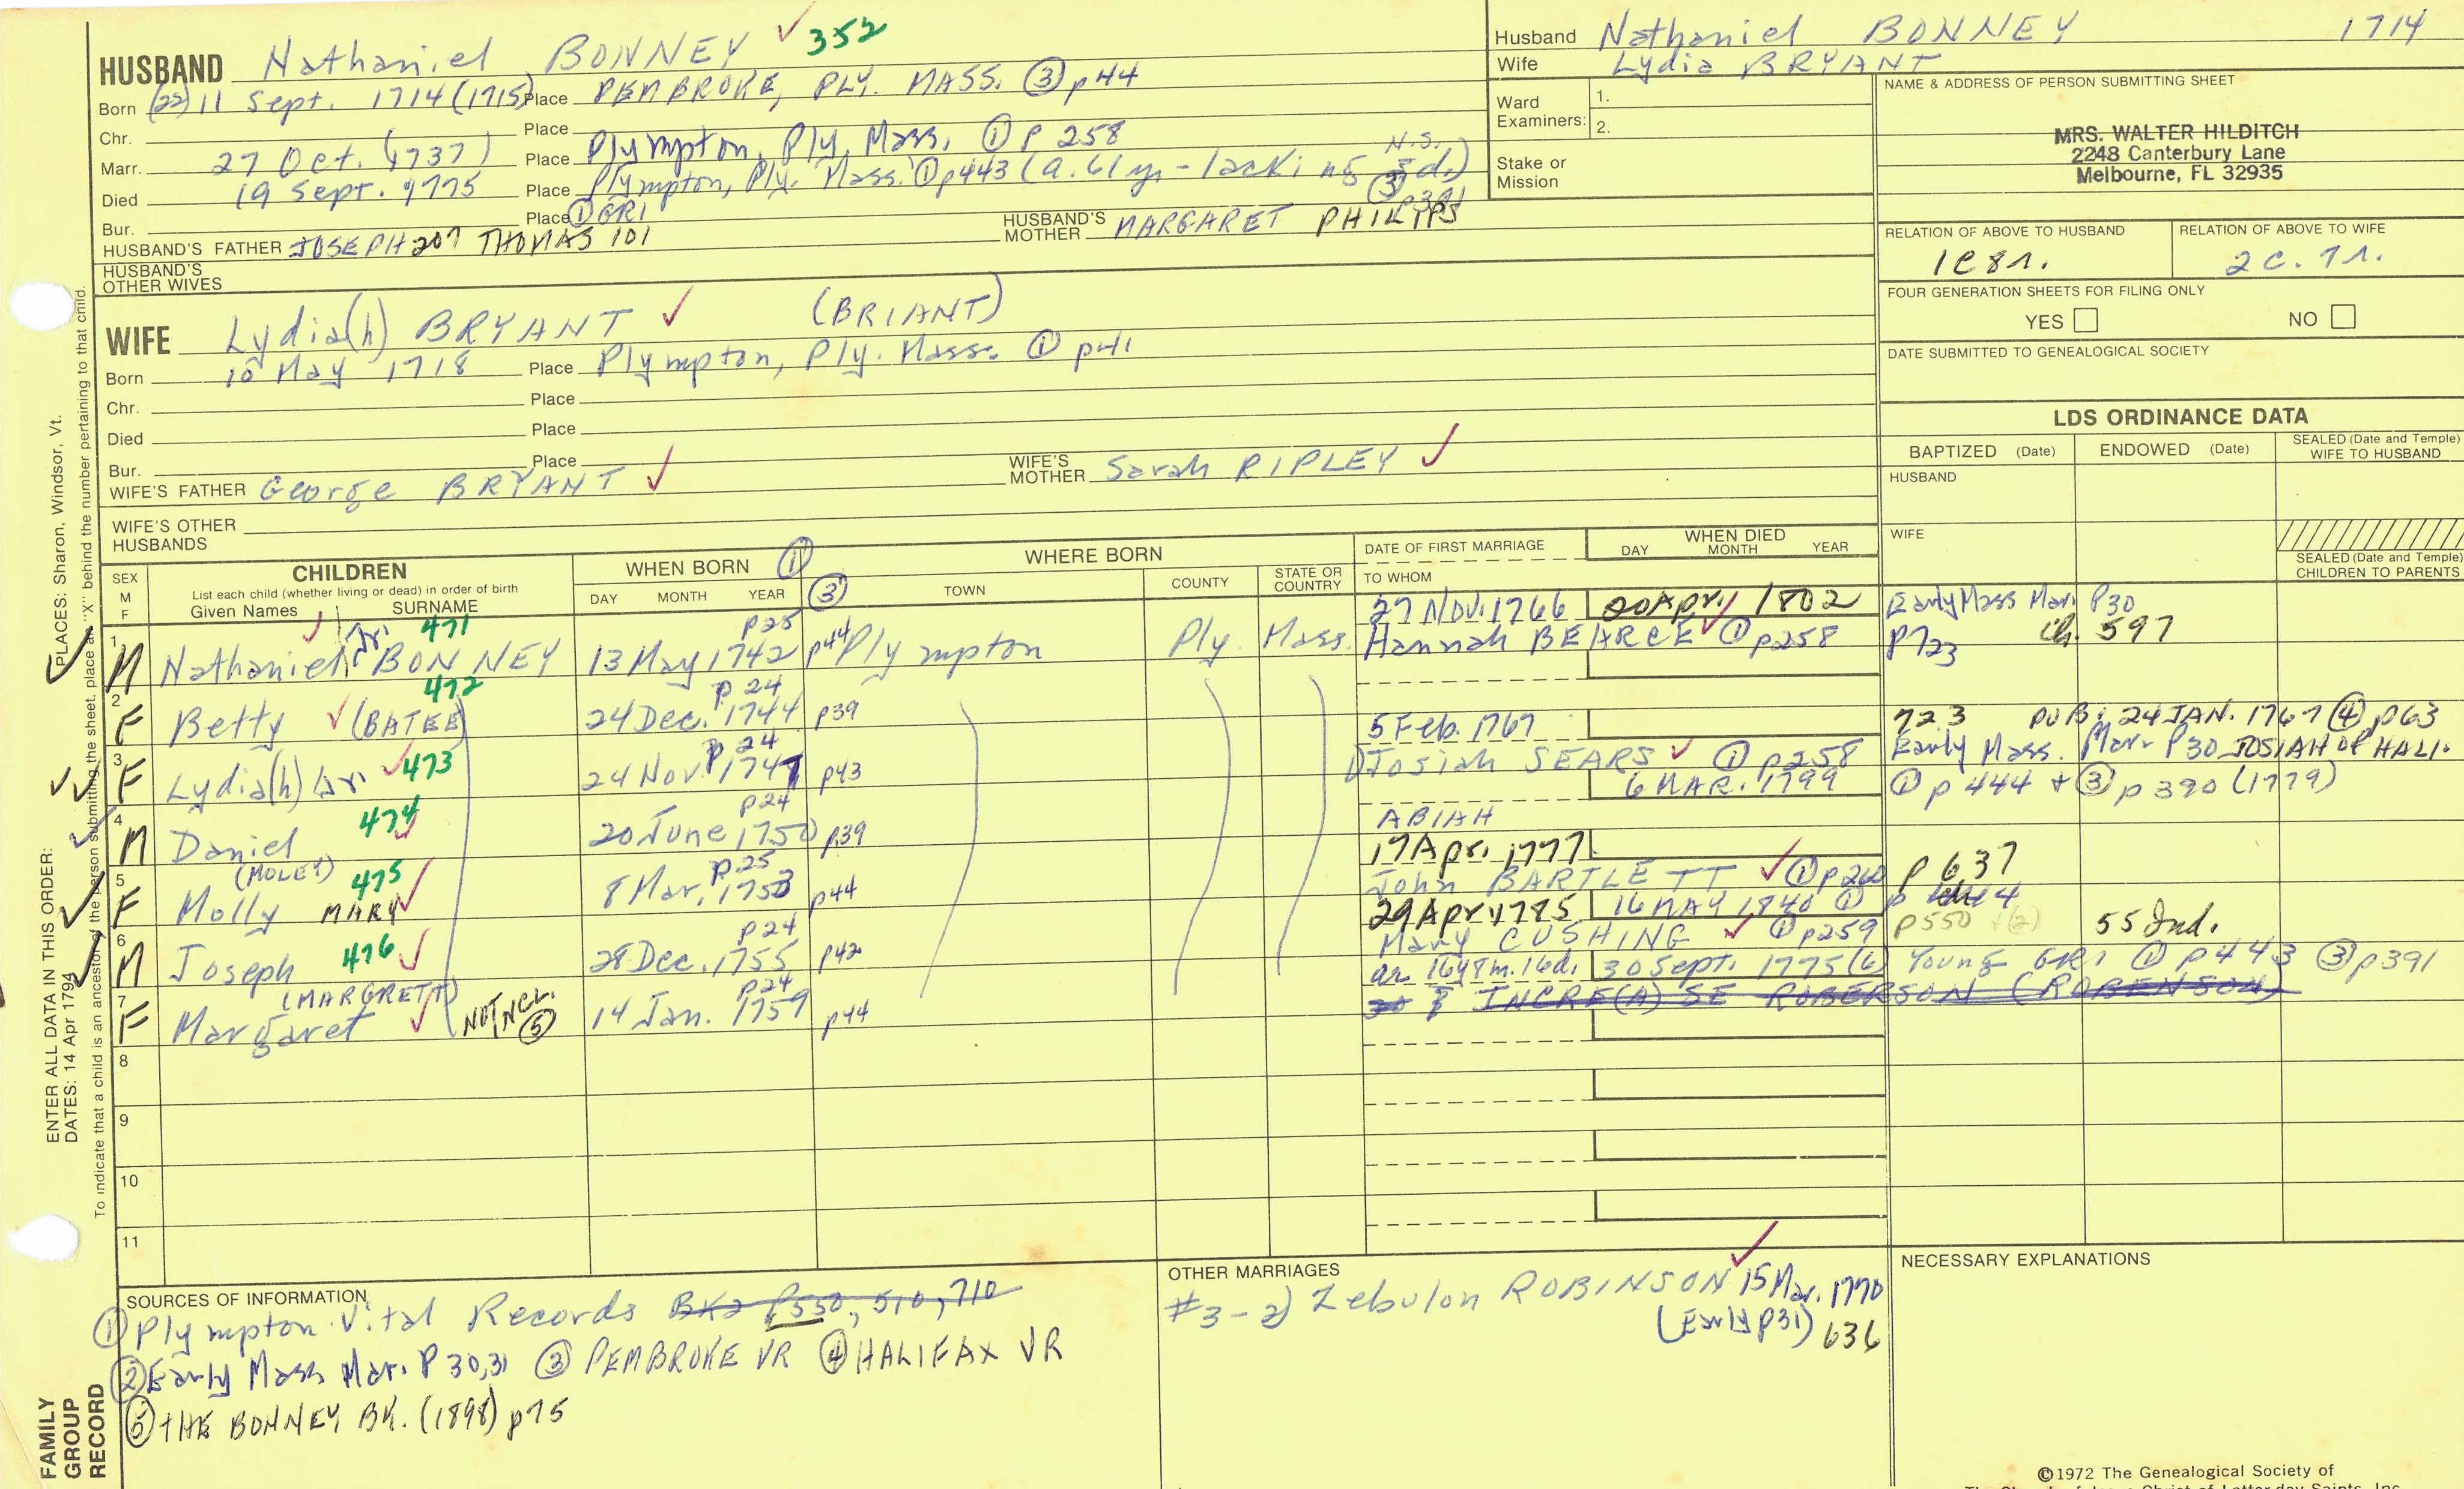 HUSBAND Nathaniel BONNEY 352
Born (22) 11 Sept. 1714 (1715) Place PEMBROKE, PLY. MASS. ③ p44
Chr. Place
Marr. 27 Oct. (1737) Place Plympton, Ply. Mass. ① P 258
Died 19 Sept. 1775 Place Plympton, Ply. Mass. ① p443 (a. 61 yr - lacking 3d.) N.S. ③ p391
Bur. Place ① GR1
HUSBAND'S FATHER JOSEPH 207 THOMAS 101 HUSBAND'S MOTHER MARGARET PHILIPPS
HUSBAND'S OTHER WIVES
WIFE Lydia(h) BRYANT (BRIANT)
Born 10 May 1718 Place Plympton, Ply. Mass. ① p41
Chr. Place
Died Place
Bur. Place
WIFE'S FATHER George BRYANT WIFE'S MOTHER Sarah RIPLEY
WIFE'S OTHER HUSBANDS
Husband Nathaniel BONNEY 1714
Wife Lydia BRYANT
Ward Examiners: 1.
2.
Stake or Mission
NAME & ADDRESS OF PERSON SUBMITTING SHEET
MRS. WALTER HILDITCH
2248 Canterbury Lane
Melbourne, FL 32935
RELATION OF ABOVE TO HUSBAND RELATION OF ABOVE TO WIFE
1C 8r. 2C. 7r.
FOUR GENERATION SHEETS FOR FILING ONLY
YES NO
DATE SUBMITTED TO GENEALOGICAL SOCIETY
LDS ORDINANCE DATA
BAPTIZED (Date) ENDOWED (Date) SEALED (Date and Temple) WIFE TO HUSBAND
HUSBAND
WIFE
SEALED (Date and Temple) CHILDREN TO PARENTS
SEX M F
CHILDREN
List each child (whether living or dead) in order of birth
Given Names SURNAME
WHEN BORN ①
DAY MONTH YEAR ③
WHERE BORN
TOWN COUNTY STATE OR COUNTRY
DATE OF FIRST MARRIAGE
TO WHOM
WHEN DIED
DAY MONTH YEAR
27 Nov. 1766 20 Apr. 1802 Early Mass Mar. P30
1 M Nathaniel Jr. BONNEY 471 13 May 1742 p25 p44 Plympton Ply. Mass. Hannah BEARCE ① p258 P723 Ch. 597
2 F Betty (BATEE) 472 24 Dec. 1744 p 24 p39
5 Feb. 1767 723 PUB. 24 JAN. 1767 ④ p63
3 F Lydia(h) Jr. 473 24 Nov. 1747 p 24 p43 1) Josiah SEARS ① p258 Early Mass. Marr P30 JOSIAH OF HALI.
6 MAR. 1799 ① p 444 + ③ p 390 (1779)
4 M Daniel 474 20 June 1750 p24 p39 ABIAH
17 Apr. 1777
5 F Molly (MOLEY) MARY 475 8 Mar. 1753 p.25 p44 John BARTLETT ① p260 p 637
29 Apr. 1785 16 MAY 1840 ① p 444
6 M Joseph 476 28 Dec. 1755 p24 p42 Mary CUSHING ① p259 P550 +(2) 55 Ind.
ae 16y 8m. 16d. 30 Sept. 1775 (6) Young GR1 ① p443 ③ p391
7 F Margaret (MARGRETT) NOT INCL. ⑤ 14 Jan. 1759 p24 p44 INCRE(A)SE ROBERSON (ROBENSON)
8
9
10
11
SOURCES OF INFORMATION
① Plympton Vital Records Bk2 P550, 510, 710
② Early Mass Mar. P 30,31 ③ PEMBROKE VR ④ HALIFAX VR
⑤ THE BONNEY BK. (1898) p75
OTHER MARRIAGES
#3-2) Zebulon ROBINSON 15 Mar. 1770
(Early P31) 636
NECESSARY EXPLANATIONS
©1972 The Genealogical Society of
The Church of Jesus Christ of Latter-day Saints, Inc.
ENTER ALL DATA IN THIS ORDER:
DATES: 14 Apr 1794
PLACES: Sharon, Windsor, Vt.
To indicate that a child is an ancestor of the person submitting the sheet, place an "X" behind the number pertaining to that child.
FAMILY GROUP RECORD